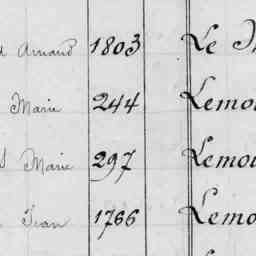 Armand 1803 Le
Marie 244 Lemo
Marie 297 Lemo
Jean 1766 Lemo